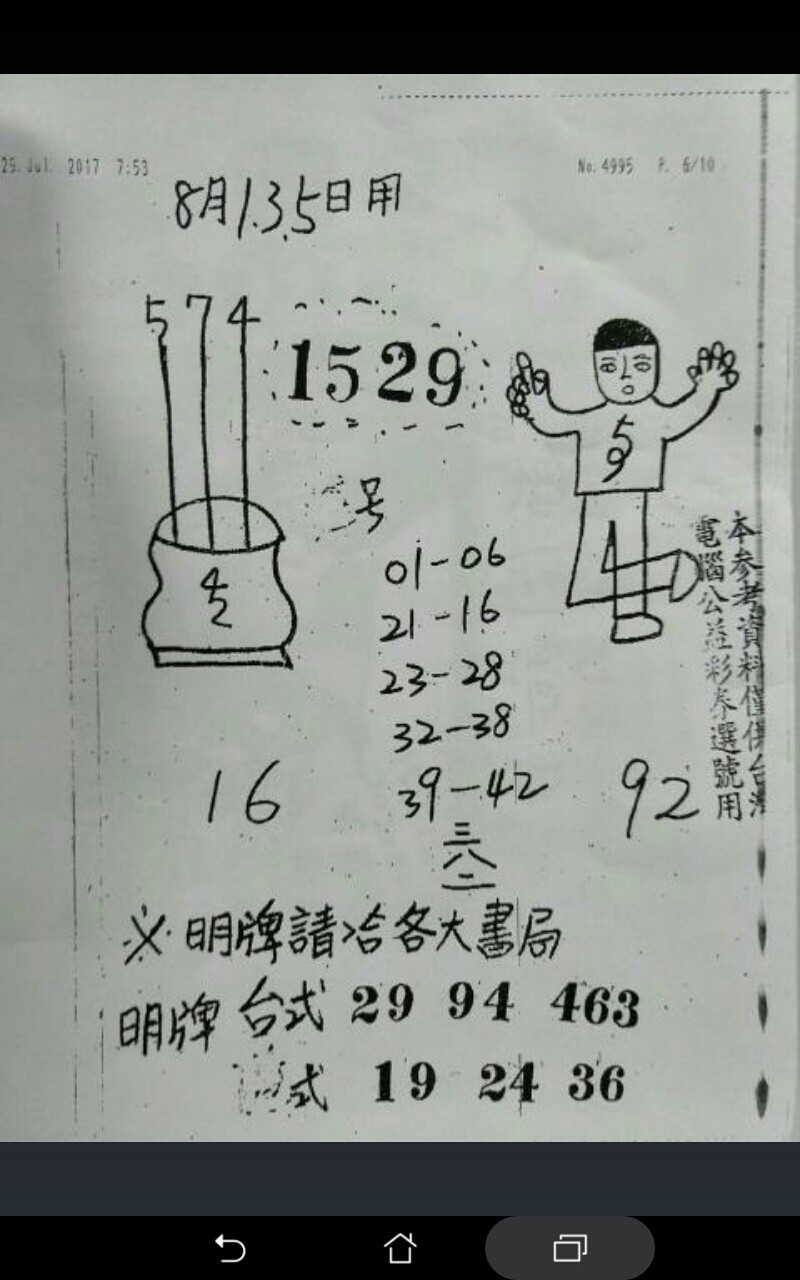 25. Jul. 2017 7:53
No. 4995 P. 6/10
8月1.3.5日用
574
1529
5
9
号
01-06
21-16
23-28
32-38
39-42
16
92
三
八
二
本参考資料僅供台灣
電腦公益彩券選號用
※明牌請洽各大書局
明牌 台式 29 94 463
式 19 24 36